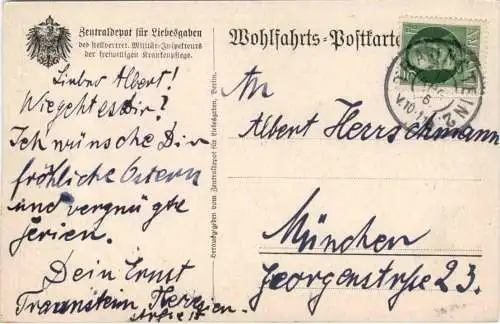 Zentraldepot für Liebesgaben
des stellvertret. Militär-Inspekteurs
der freiwilligen Krankenpflege.
Lieber Albert!
Wie geht es dir?
Ich wünsche Dir
fröhliche Ostern
und vergnügte
Ferien.
Dein Ernst
Traunstein,
Herausgegeben vom Zentraldepot für Liebesgaben, Berlin.
Wohlfahrts-Postkarte
An
Albert Herrschmann
München
Georgenstrße 23.